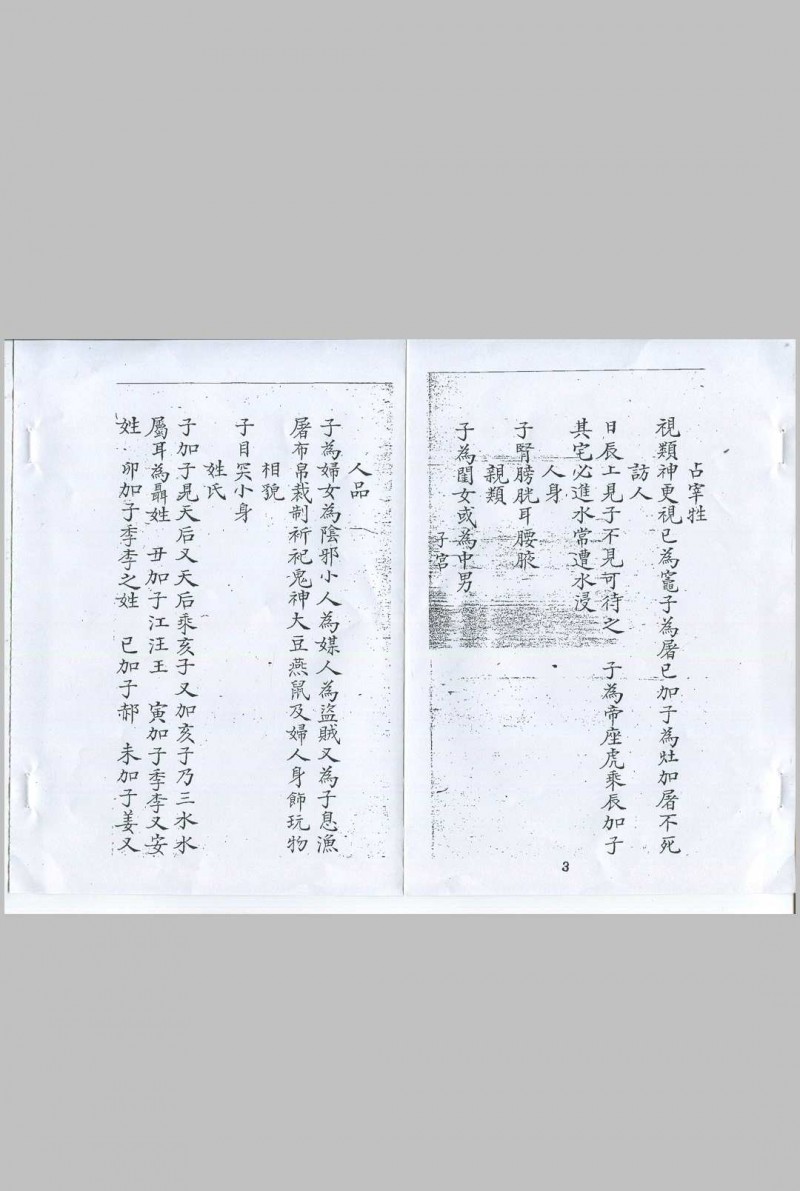 占宰牲
視類神更視巳為竈子為屠巳加子為灶加屠不死
訪人
日辰上見子不見可待之　子為帝座虎乘辰加子
其宅必進水常遭水浸
人身
子腎膀胱耳腰腋
親類
子為閨女或為中男
子宮
3
人品
子為婦女為陰邪小人為媒人為盜賊又為子息漁
屠布帛裁制祈祀鬼神大豆燕鼠及婦人身飾玩物
相貌
子目小身
姓氏
子加子見天后又天后乘亥子又加亥子乃三水水
屬耳為聶姓　丑加子江汪王　寅加子季李又安
姓　卯加子季李之姓　巳加子郝　未加子姜又